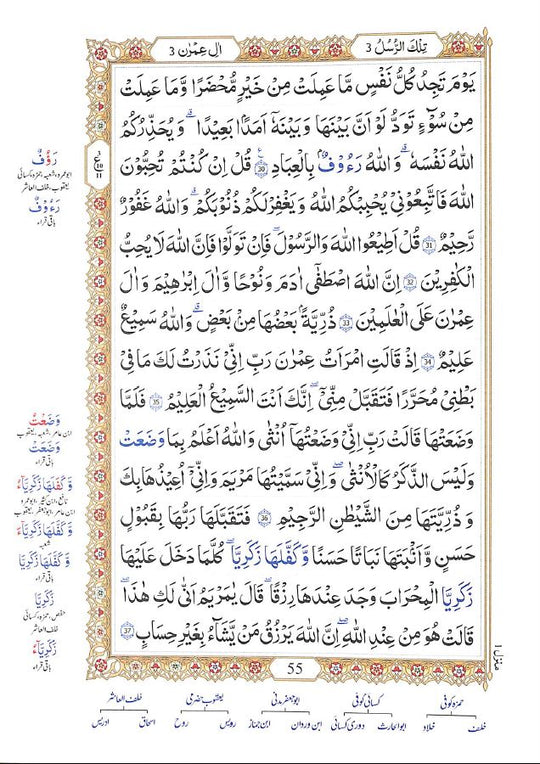 تِلْكَ الرُّسُلُ 3
اٰلِ عِمْرٰن 3
يَوْمَ تَجِدُ كُلُّ نَفْسٍ مَّا عَمِلَتْ مِنْ خَيْرٍ مُّحْضَرًا وَّمَا عَمِلَتْ
مِنْ سُوْٓءٍ تَوَدُّ لَوْ اَنَّ بَيْنَهَا وَبَيْنَهٗٓ اَمَدًۢا بَعِيْدًا ۗ وَيُحَذِّرُكُمُ
اللّٰهُ نَفْسَهٗ ۗ وَاللّٰهُ رَءُوْفٌۢ بِالْعِبَادِ 30 قُلْ اِنْ كُنْتُمْ تُحِبُّوْنَ
اللّٰهَ فَاتَّبِعُوْنِيْ يُحْبِبْكُمُ اللّٰهُ وَيَغْفِرْ لَكُمْ ذُنُوْبَكُمْ ۗ وَاللّٰهُ غَفُوْرٌ
رَّحِيْمٌ 31 قُلْ اَطِيْعُوا اللّٰهَ وَالرَّسُوْلَ ۚ فَاِنْ تَوَلَّوْا فَاِنَّ اللّٰهَ لَا يُحِبُّ
الْكٰفِرِيْنَ 32 اِنَّ اللّٰهَ اصْطَفٰٓى اٰدَمَ وَنُوْحًا وَّاٰلَ اِبْرٰهِيْمَ وَاٰلَ
عِمْرٰنَ عَلَى الْعٰلَمِيْنَ 33 ذُرِّيَّةًۢ بَعْضُهَا مِنْۢ بَعْضٍ ۗ وَاللّٰهُ سَمِيْعٌ
عَلِيْمٌ 34 اِذْ قَالَتِ امْرَاَتُ عِمْرٰنَ رَبِّ اِنِّيْ نَذَرْتُ لَكَ مَا فِيْ
بَطْنِيْ مُحَرَّرًا فَتَقَبَّلْ مِنِّيْ ۚ اِنَّكَ اَنْتَ السَّمِيْعُ الْعَلِيْمُ 35 فَلَمَّا
وَضَعَتْهَا قَالَتْ رَبِّ اِنِّيْ وَضَعْتُهَآ اُنْثٰى وَاللّٰهُ اَعْلَمُ بِمَا وَضَعَتْ
وَلَيْسَ الذَّكَرُ كَالْاُنْثٰى ۚ وَاِنِّيْ سَمَّيْتُهَا مَرْيَمَ وَاِنِّيْٓ اُعِيْذُهَا بِكَ
وَذُرِّيَّتَهَا مِنَ الشَّيْطٰنِ الرَّجِيْمِ 36 فَتَقَبَّلَهَا رَبُّهَا بِقَبُوْلٍ
حَسَنٍ وَّاَنْۢبَتَهَا نَبَاتًا حَسَنًا وَّكَفَّلَهَا زَكَرِيَّا ۗ كُلَّمَا دَخَلَ عَلَيْهَا
زَكَرِيَّا الْمِحْرَابَ وَجَدَ عِنْدَهَا رِزْقًا ۚ قَالَ يٰمَرْيَمُ اَنّٰى لَكِ هٰذَا ۗ
قَالَتْ هُوَ مِنْ عِنْدِ اللّٰهِ ۗ اِنَّ اللّٰهَ يَرْزُقُ مَنْ يَّشَآءُ بِغَيْرِ حِسَابٍ 37
55
منزل ۱
ع
10
11
رَؤُفٌ
ابوعمرو، شعبہ، حمزہ، کسائی
یعقوب، خلف العاشر
رَءُوْفٌ
باقی قراء
وَضَعْتُ
ابن عامر، شعبہ، یعقوب
وَضَعَتْ
باقی قراء
وَّ كَفَلَهَا زَكَرِيَّآءُ
نافع، ابن کثیر، ابوعمرو
ابن عامر، ابوجعفر، یعقوب
وَّ كَفَّلَهَا زَكَرِيَّآءَ
شعبہ
وَّ كَفَّلَهَا زَكَرِيَّا
باقی قراء
زَكَرِيَّا
حفص، حمزہ، کسائی
خلف العاشر
زَكَرِيَّآءُ
باقی قراء
حمزہ کوفی کسائی کوفی ابوجعفر مدنی یعقوب حضرمی خلف العاشر
خلف خلاد ابوالحارث دوری کسائی ابن وردان ابن جماز رویس روح اسحاق ادریس